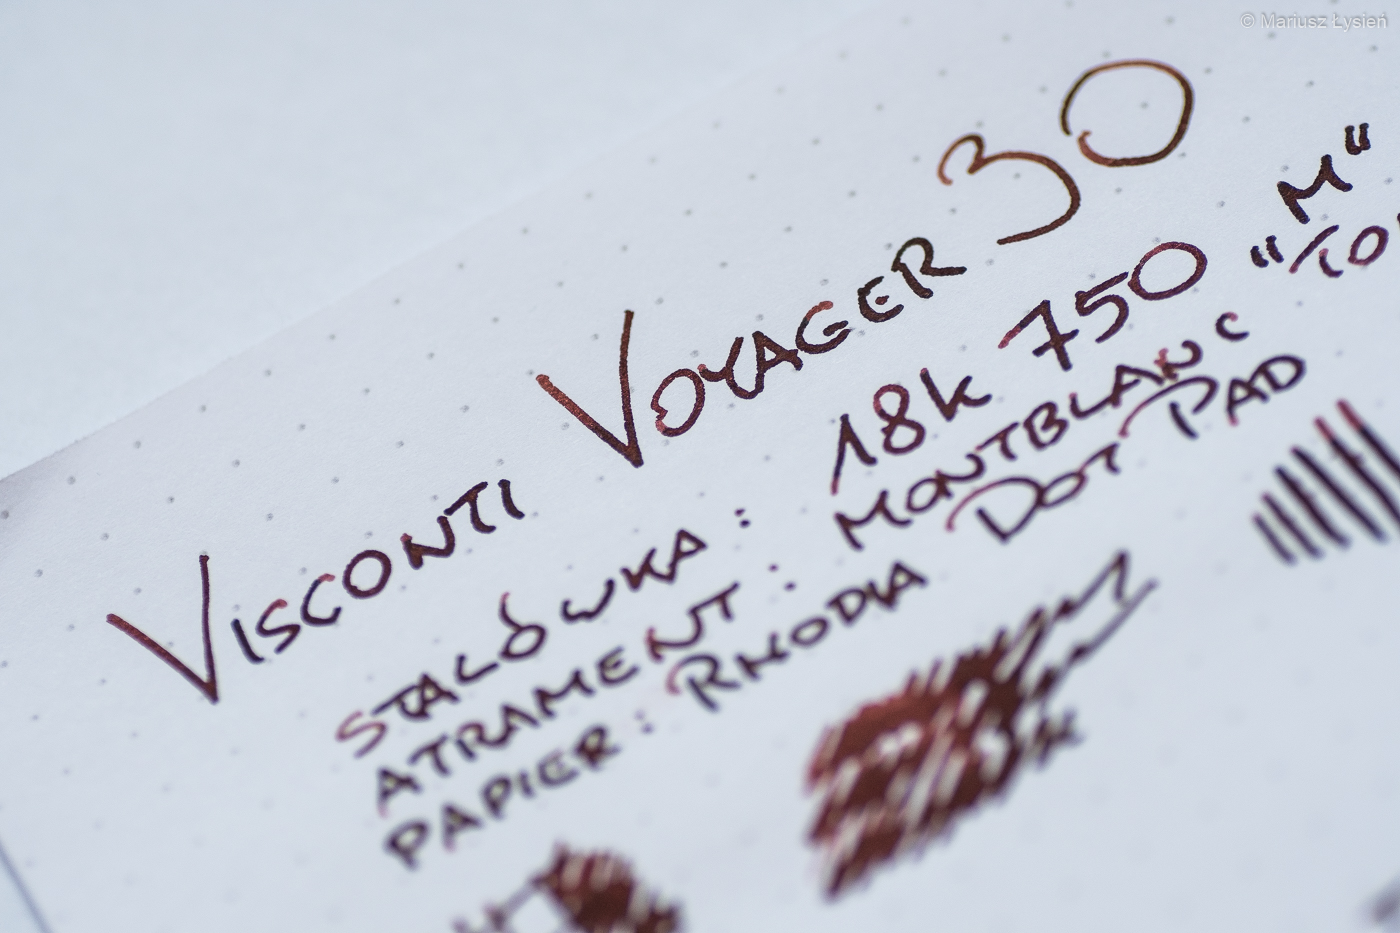 © Mariusz Łysień
VISCONTI VOYAGER 30
STALÓWKA: 18K 750 "M"
ATRAMENT: MONTBLANC
PAPIER: RHODIA DOT PAD